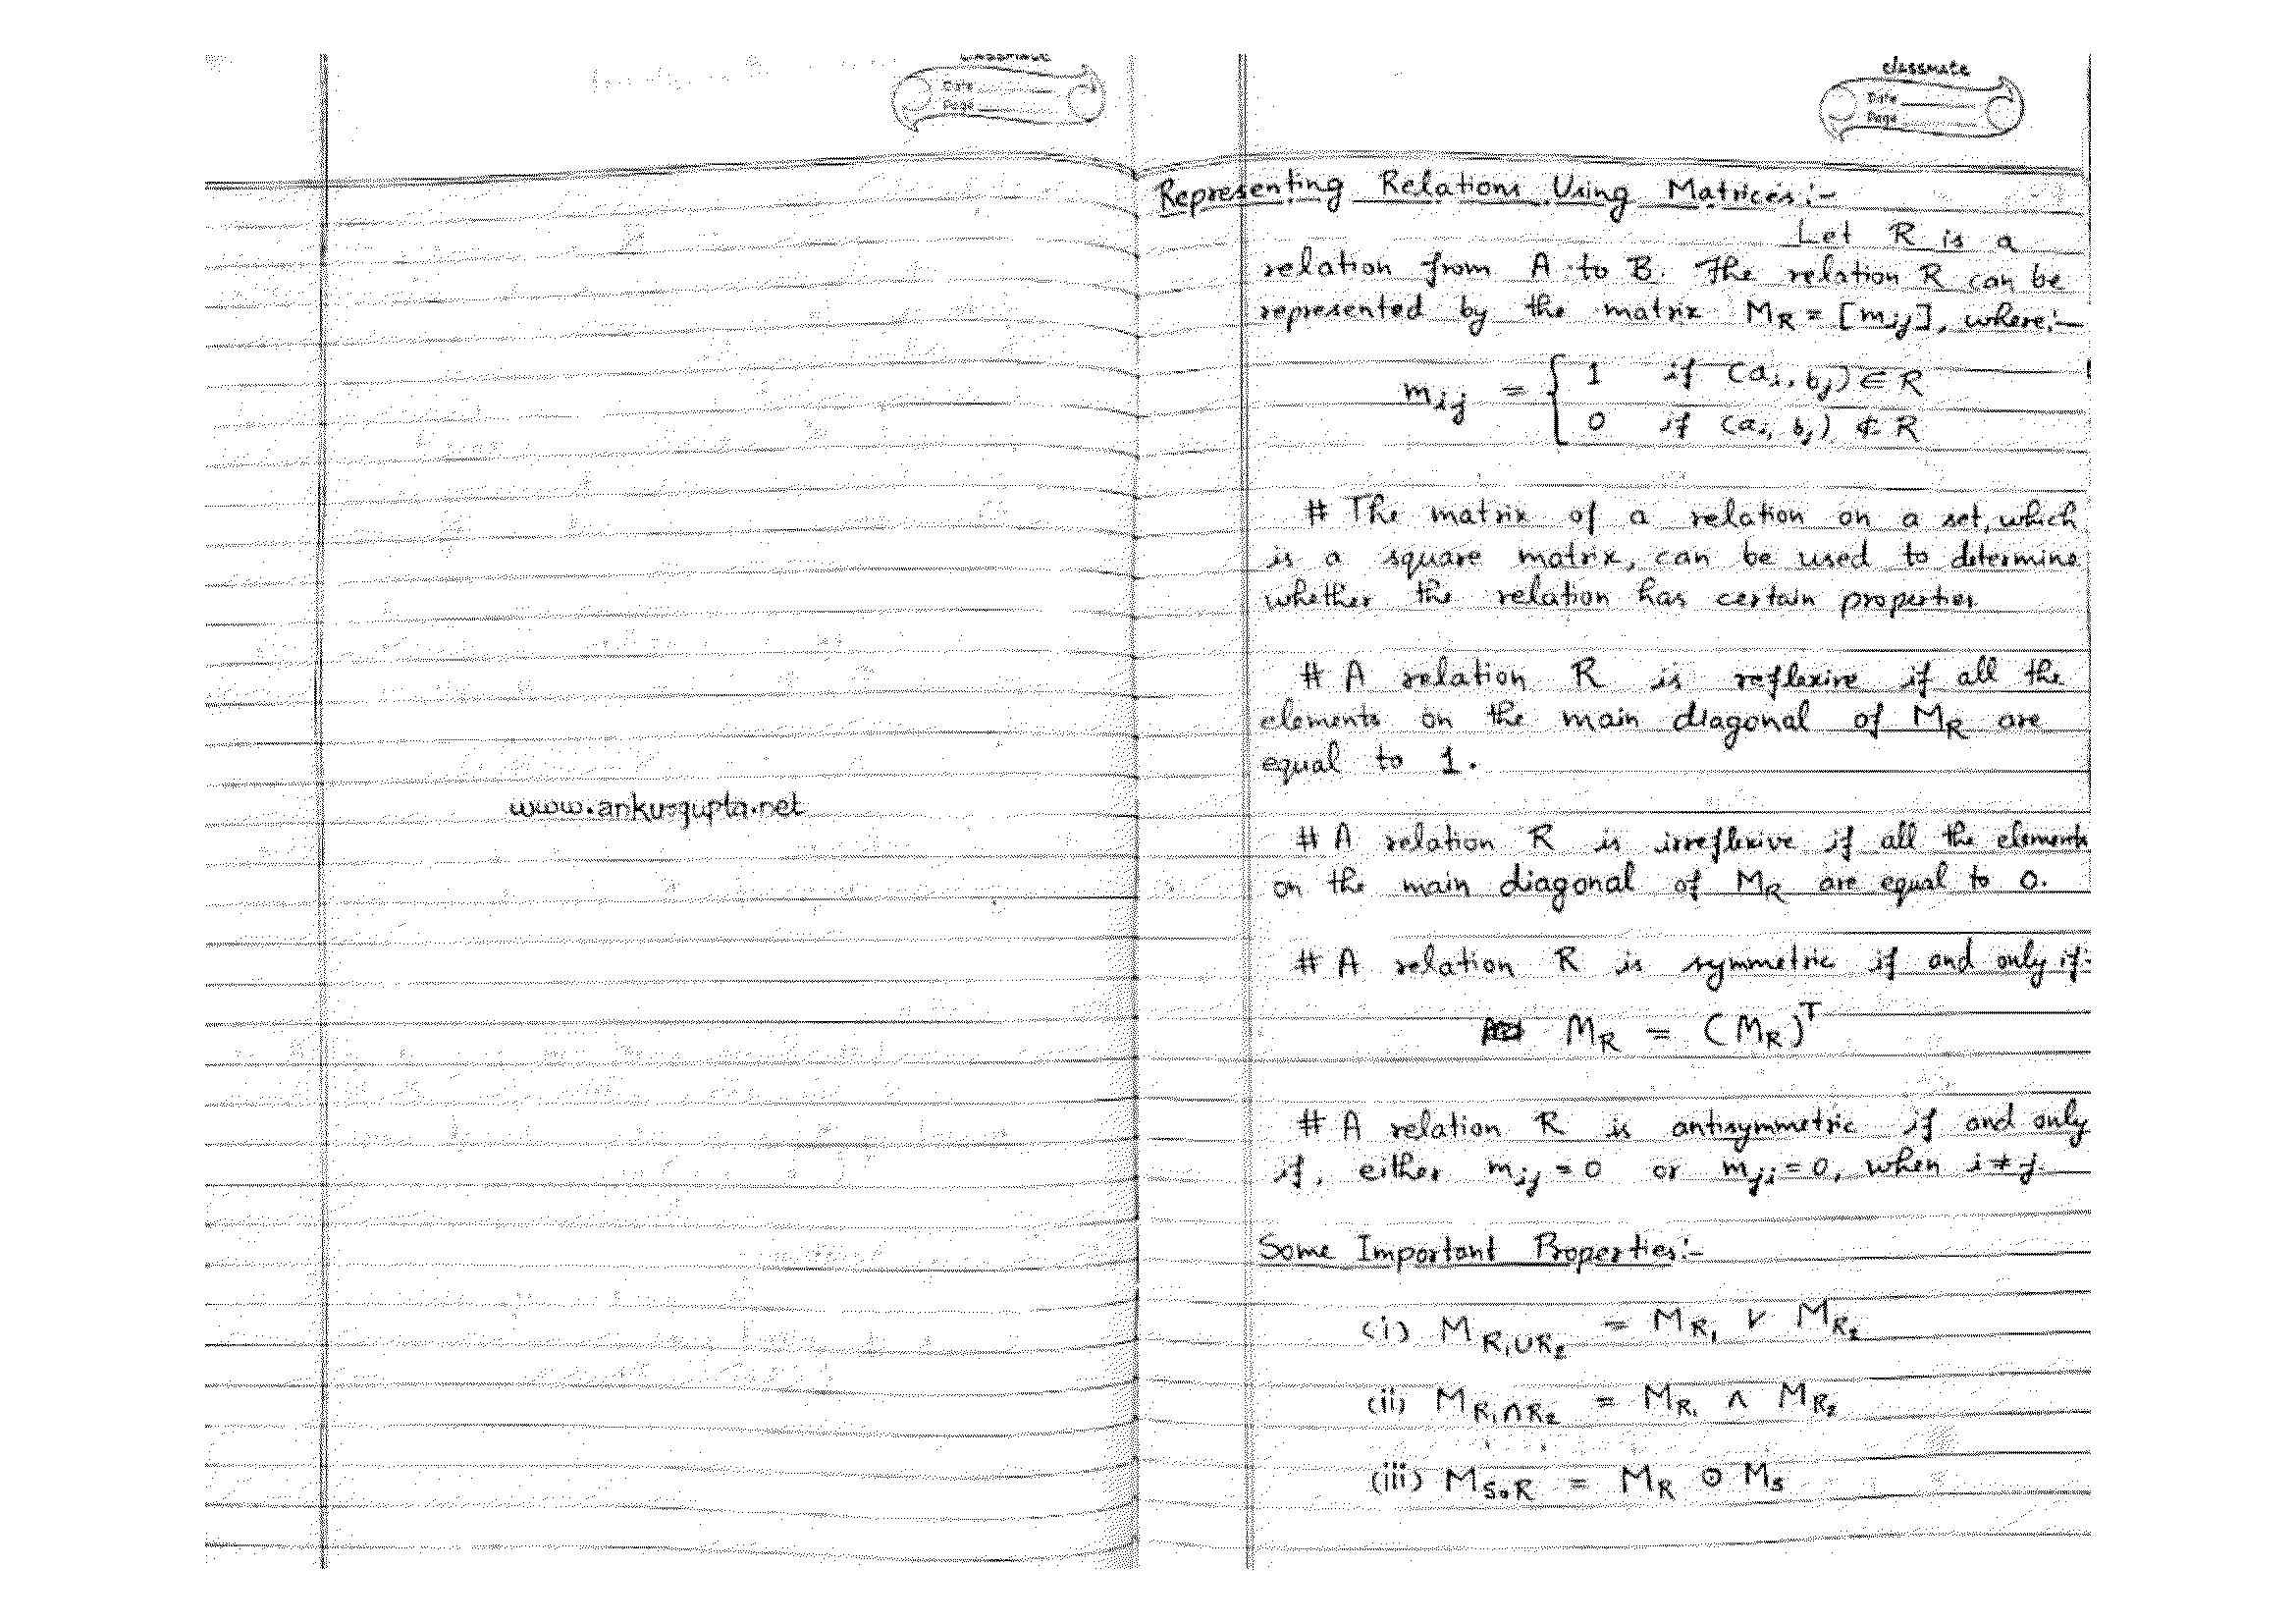 classmate
Date
Page
www.ankusgupta.net
classmate
Date
Page
Representing Relations Using Matrices:-
Let R is a
relation from A to B. The relation R can be
represented by the matrix M_R = [m_ij], where:-
m_ij = { 1 if (a_i, b_j) ∈ R
0 if (a_i, b_j) ∉ R
# The matrix of a relation on a set, which
is a square matrix, can be used to determine
whether the relation has certain properties
# A relation R is reflexive if all the
elements on the main diagonal of M_R are
equal to 1.
# A relation R is irreflexive if all the elements
on the main diagonal of M_R are equal to 0.
# A relation R is symmetric if and only if:-
M_R = (M_R)^T
# A relation R is antisymmetric if and only
if, either m_ij = 0 or m_ji = 0, when i ≠ j.
Some Important Properties:-
(i) M_R₁∪R₂ = M_R₁ ∨ M_R₂
(ii) M_R₁∩R₂ = M_R₁ ∧ M_R₂
(iii) M_S∘R = M_R ⊙ M_S